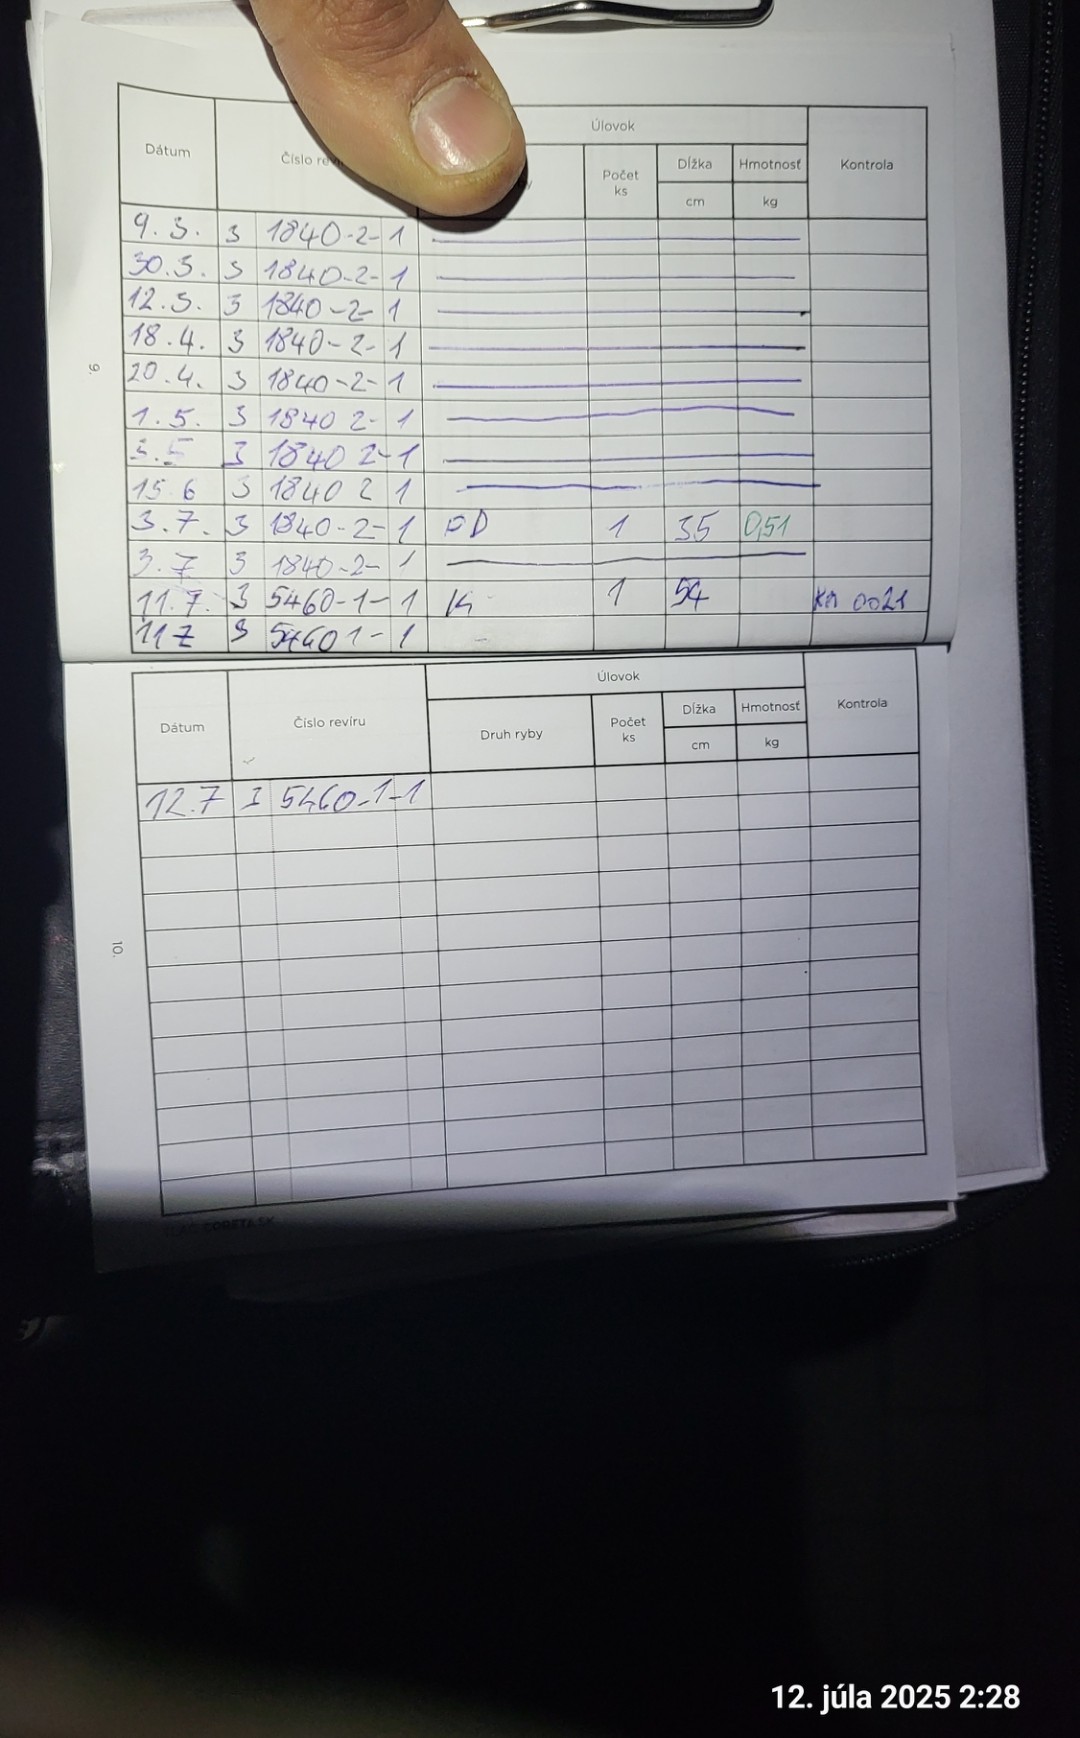 Úlovok
Dátum Číslo Počet ks Dĺžka cm Hmotnosť kg Kontrola
9. 3. 3 1840-2-1
30.3. 3 1840-2-1
12.3. 3 1840-2-1
18.4. 3 1840-2-1
20.4. 3 1840-2-1
1.5. 3 1840 2-1
3.5 3 1840 2-1
15 6 3 1840 2 1
3.7. 3 1840-2-1 PD 1 35 0,51
3.7 3 1840-2-1
11.7. 3 5460-1-1 K 1 54 0021
11 7 3 5460 1-1
9.
Úlovok
Dátum Číslo revíru Druh ryby Počet ks Dĺžka cm Hmotnosť kg Kontrola
12.7 3 5460-1-1
10.
12. júla 2025 2:28